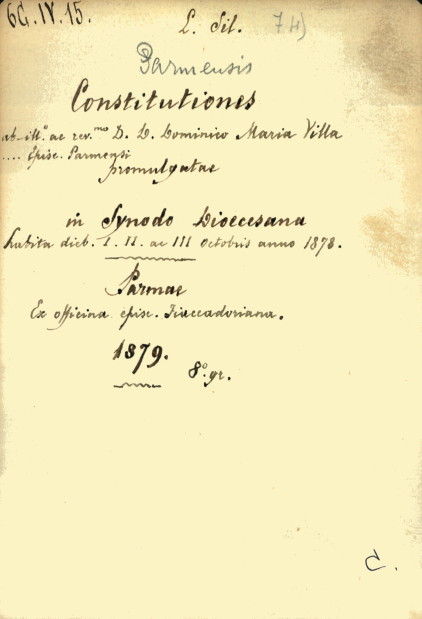 6G.IV.15.
L. Sil. 74)
Parmensis
Constitutiones
ab ill.º ac rev.mo D. D. Dominico Maria Villa
.... Episc. Parmensi
promulgatae
in Synodo Dioecesana
habita dieb. I. II. ac III Octobris anno 1878.
Parmae
Ex officina episc. Fiaccadoriana.
1879.
8º. gr.
C.